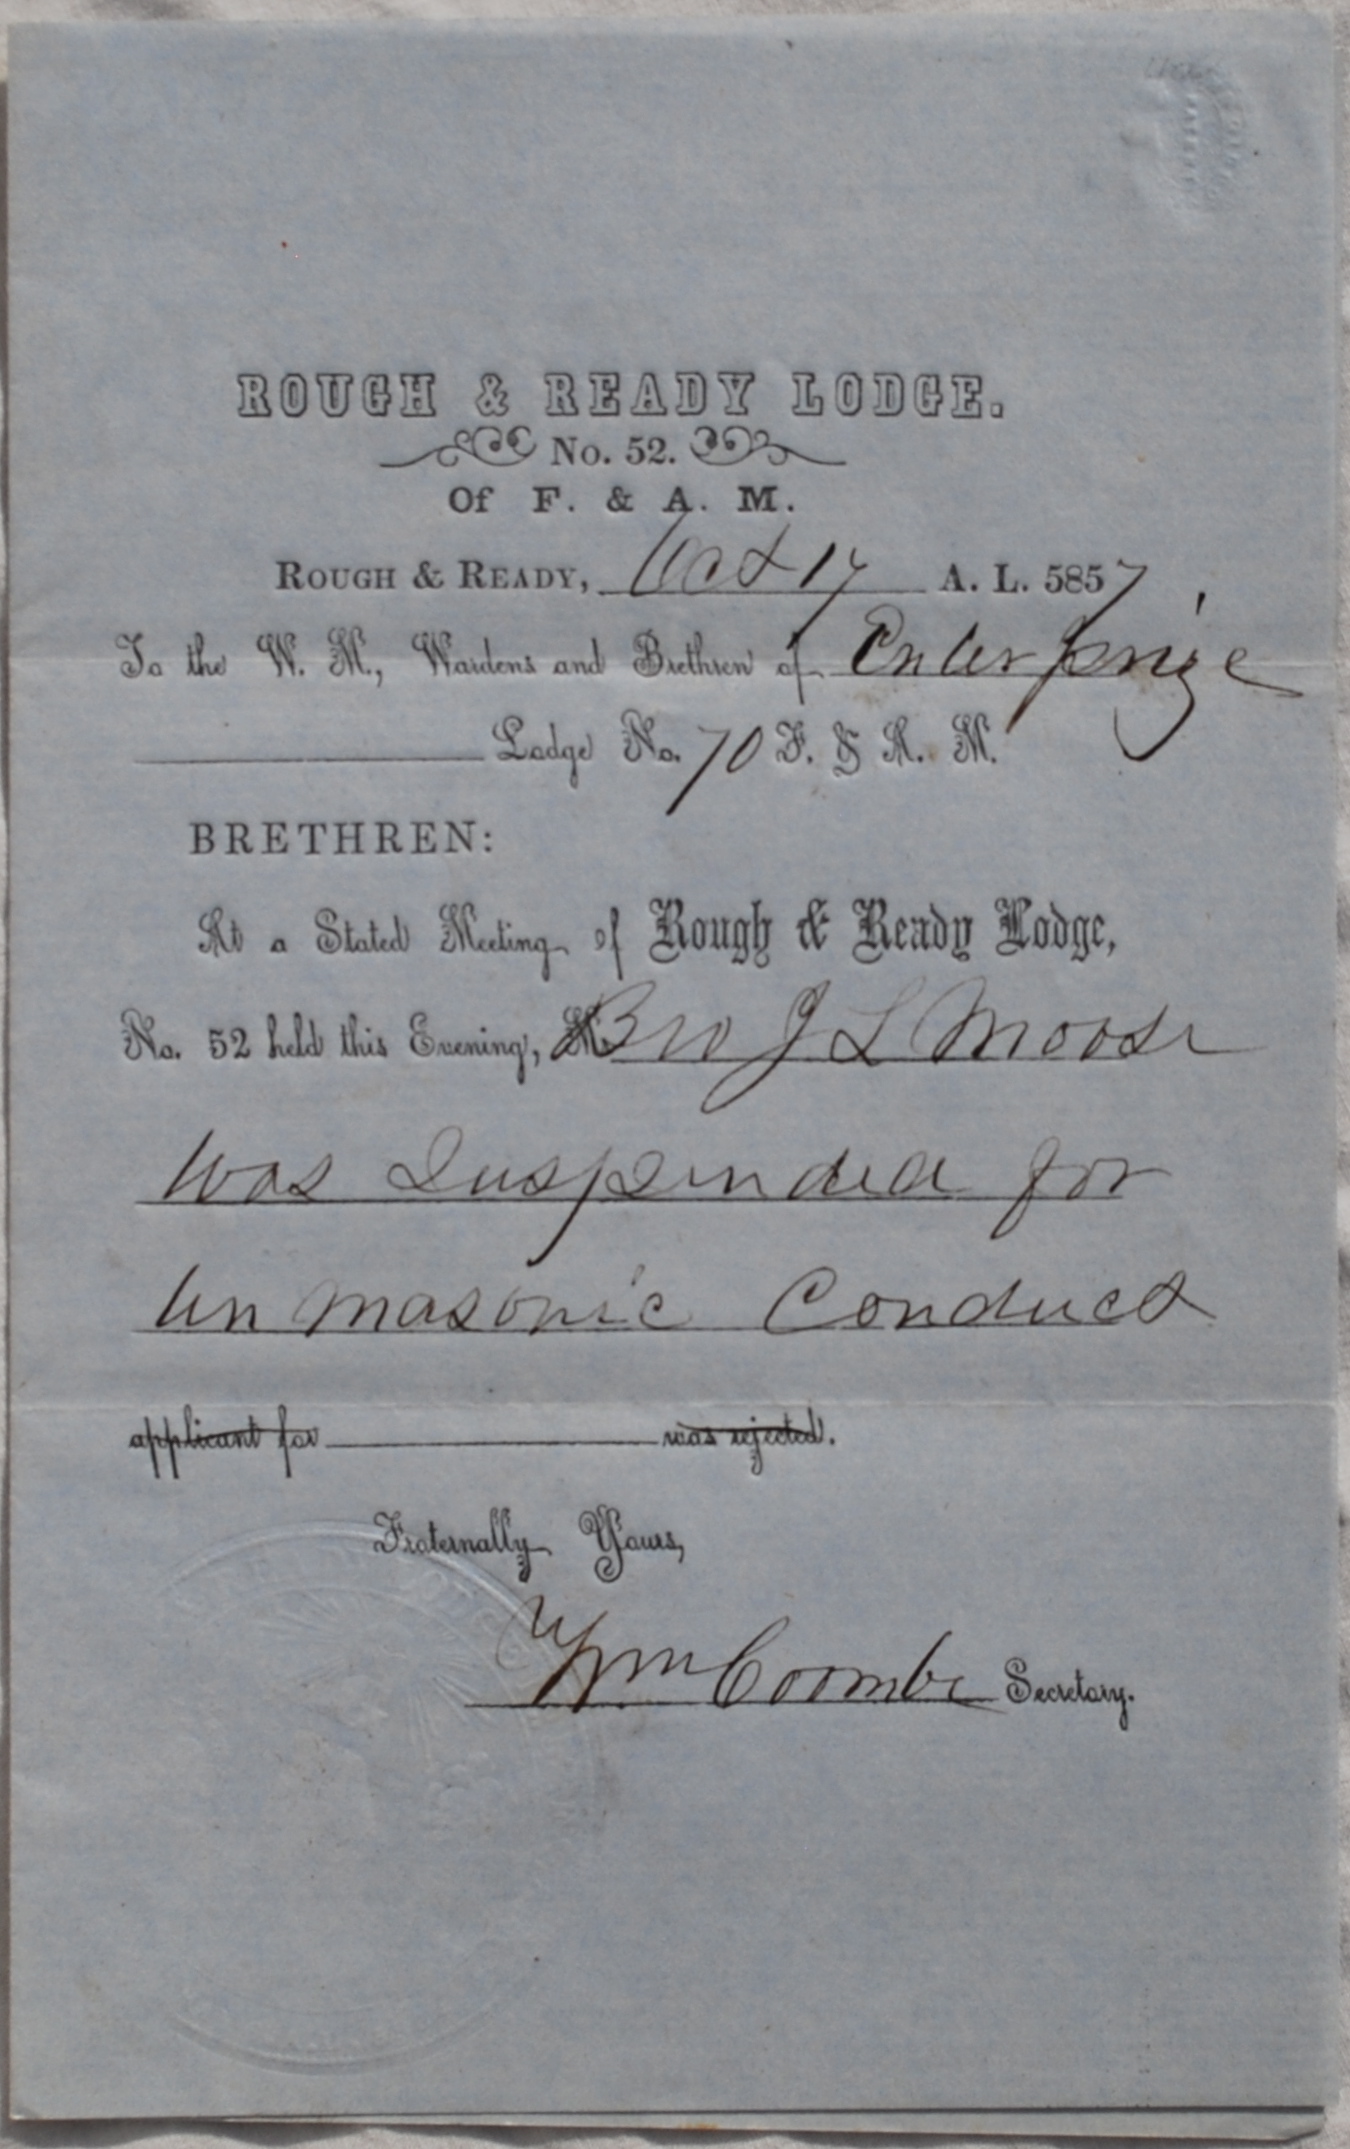 ROUGH & READY LODGE.
No. 52.
Of F. & A. M.
ROUGH & READY, Oct 17 A. L. 5857
To the W. M., Wardens and Brethren of Enterprize
Lodge No. 70 F. & A. M.
BRETHREN:
At a Stated Meeting of Rough & Ready Lodge,
No. 52 held this Evening, Bro J L Moose
was Suspended for
Un masonic Conduct
applicant for was rejected.
Fraternally Yours,
Wm Coombe Secretary.